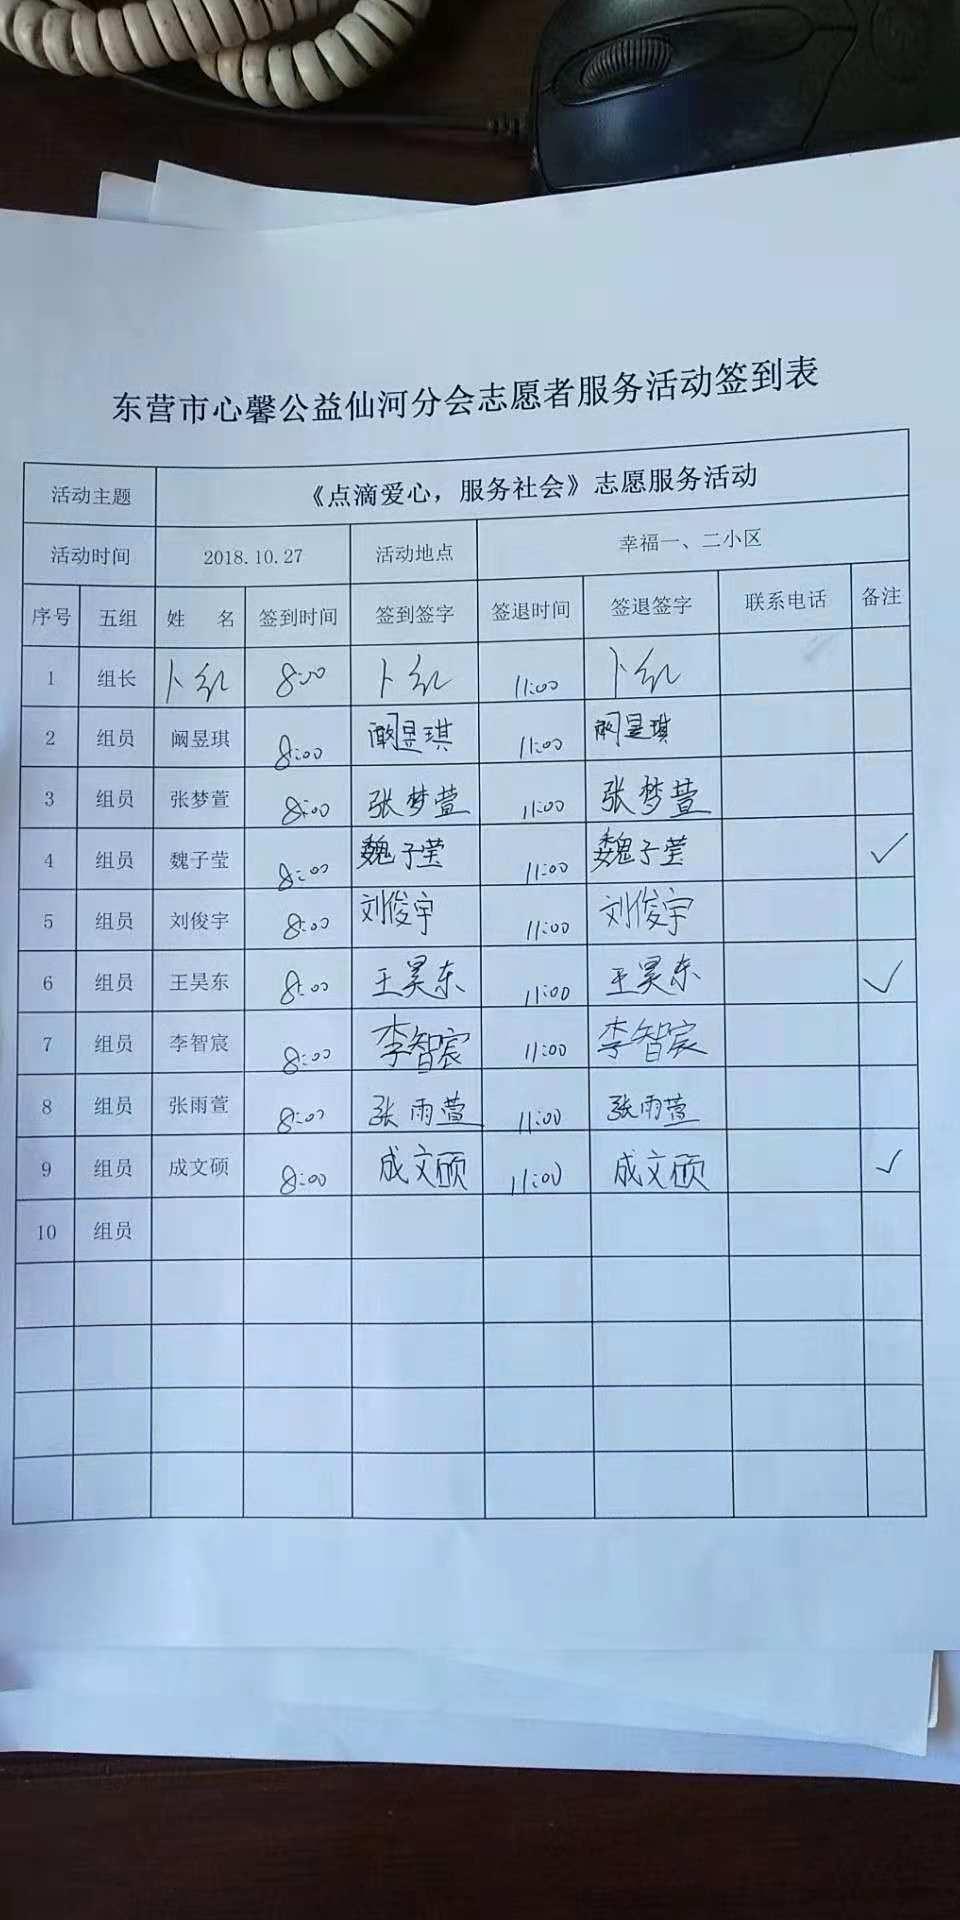 东营市心馨公益仙河分会志愿者服务活动签到表
活动主题 《点滴爱心，服务社会》志愿服务活动
活动时间 2018.10.27 活动地点 幸福一、二小区
序号 五组 姓 名 签到时间 签到签字 签退时间 签退签字 联系电话 备注
1 组长 卜红 8:00 卜红 11:00 卜红
2 组员 阚昱琪 8:00 阚昱琪 11:00 阚昱琪
3 组员 张梦萱 8:00 张梦萱 11:00 张梦萱
4 组员 魏子莹 8:00 魏子莹 11:00 魏子莹 ✓
5 组员 刘俊宇 8:00 刘俊宇 11:00 刘俊宇
6 组员 王昊东 8:00 王昊东 11:00 王昊东 ✓
7 组员 李智宸 8:00 李智宸 11:00 李智宸
8 组员 张雨萱 8:00 张雨萱 11:00 张雨萱
9 组员 成文硕 8:00 成文硕 11:00 成文硕 ✓
10 组员